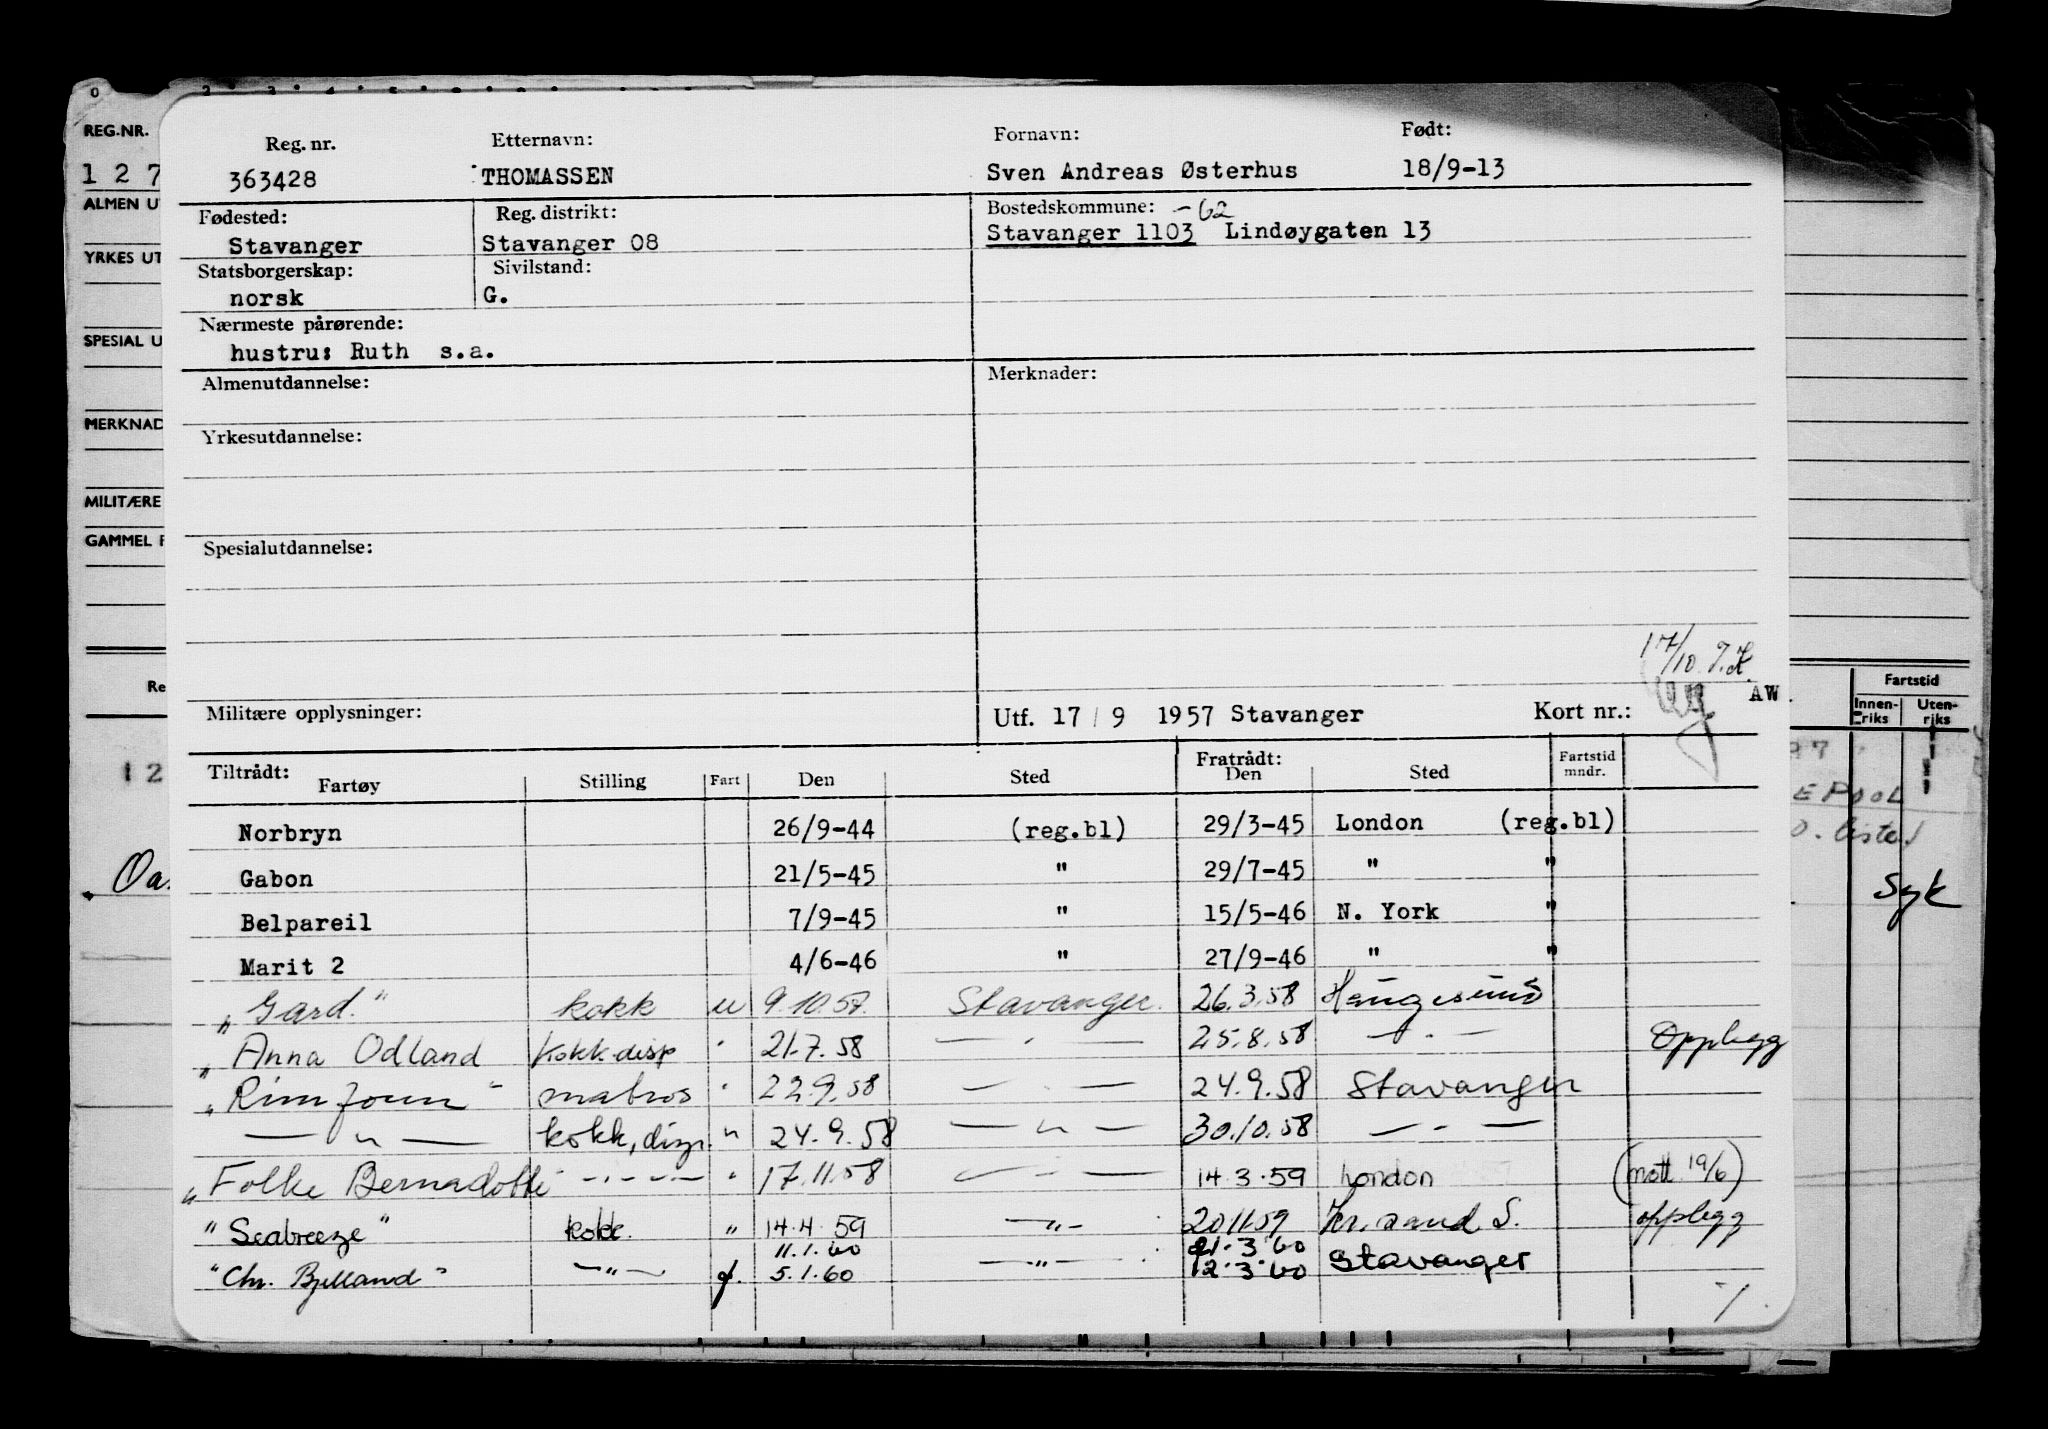 REG.NR.
1 2 7
ALMEN U
YRKES UT
SPESIAL U
MERKNAD
MILITÆRE
GAMMEL F
Re
1 2
Reg. nr. Etternavn: Fornavn: Født:
363428 THOMASSEN Sven Andreas Østerhus 18/9-13
Fødested: Reg. distrikt: Bostedskommune: -62
Stavanger Stavanger 08 Stavanger 1103 Lindøygaten 13
Statsborgerskap: Sivilstand:
norsk G.
Nærmeste pårørende:
hustru: Ruth s.a.
Almenutdannelse: Merknader:
Yrkesutdannelse:
Spesialutdannelse:
17/10
Militære opplysninger: Utf. 17 / 9 1957 Stavanger Kort nr.: AW.
Fartstid
Innenriks Utenriks
Tiltrådt: Fartøy Stilling Fart Den Sted Fratrådt: Den Sted Fartstid mndr.
Norbryn 26/9-44 (reg.bl) 29/3-45 London (reg.bl)
Gabon 21/5-45 " 29/7-45 " "
Belpareil 7/9-45 " 15/5-46 N. York "
Marit 2 4/6-46 " 27/9-46 " "
„Gard." kokk u 9.10.57. Stavanger. 26.3.58 Haugesund
„Anna Odland kokk.disp " 21.7.58 — " — 25.8.58 — " — Opplegg
matros " 22.9.58 — " — 24.9.58 Stavanger
— " — kokk, " 24.9.58 — " — 30.10.58 — " —
„Folke Bernadotte — " — " 17.11.58 — " — 14.3.59 London (mott 19/6)
"Seabreeze" kokk. " 14.4.59 — " — 20.11.59 Kr.sand S. opplegg
11.1.60 21.3.60
"Chr. Bjelland" — " — 5.1.60 — " — 12.3.60 Stavanger
EPOOL
Syk